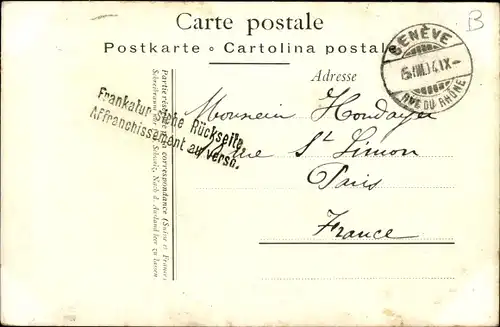 Carte postale
Postkarte • Cartolina postale
Adresse
B
GENÈVE
RUE DU RHÔNE
Frankatur siehe Rückseite.
Affranchissement au verso.
Monsieur
Rue St Simon
Paris
France
Partie réservée à la correspondance (Suisse et France)